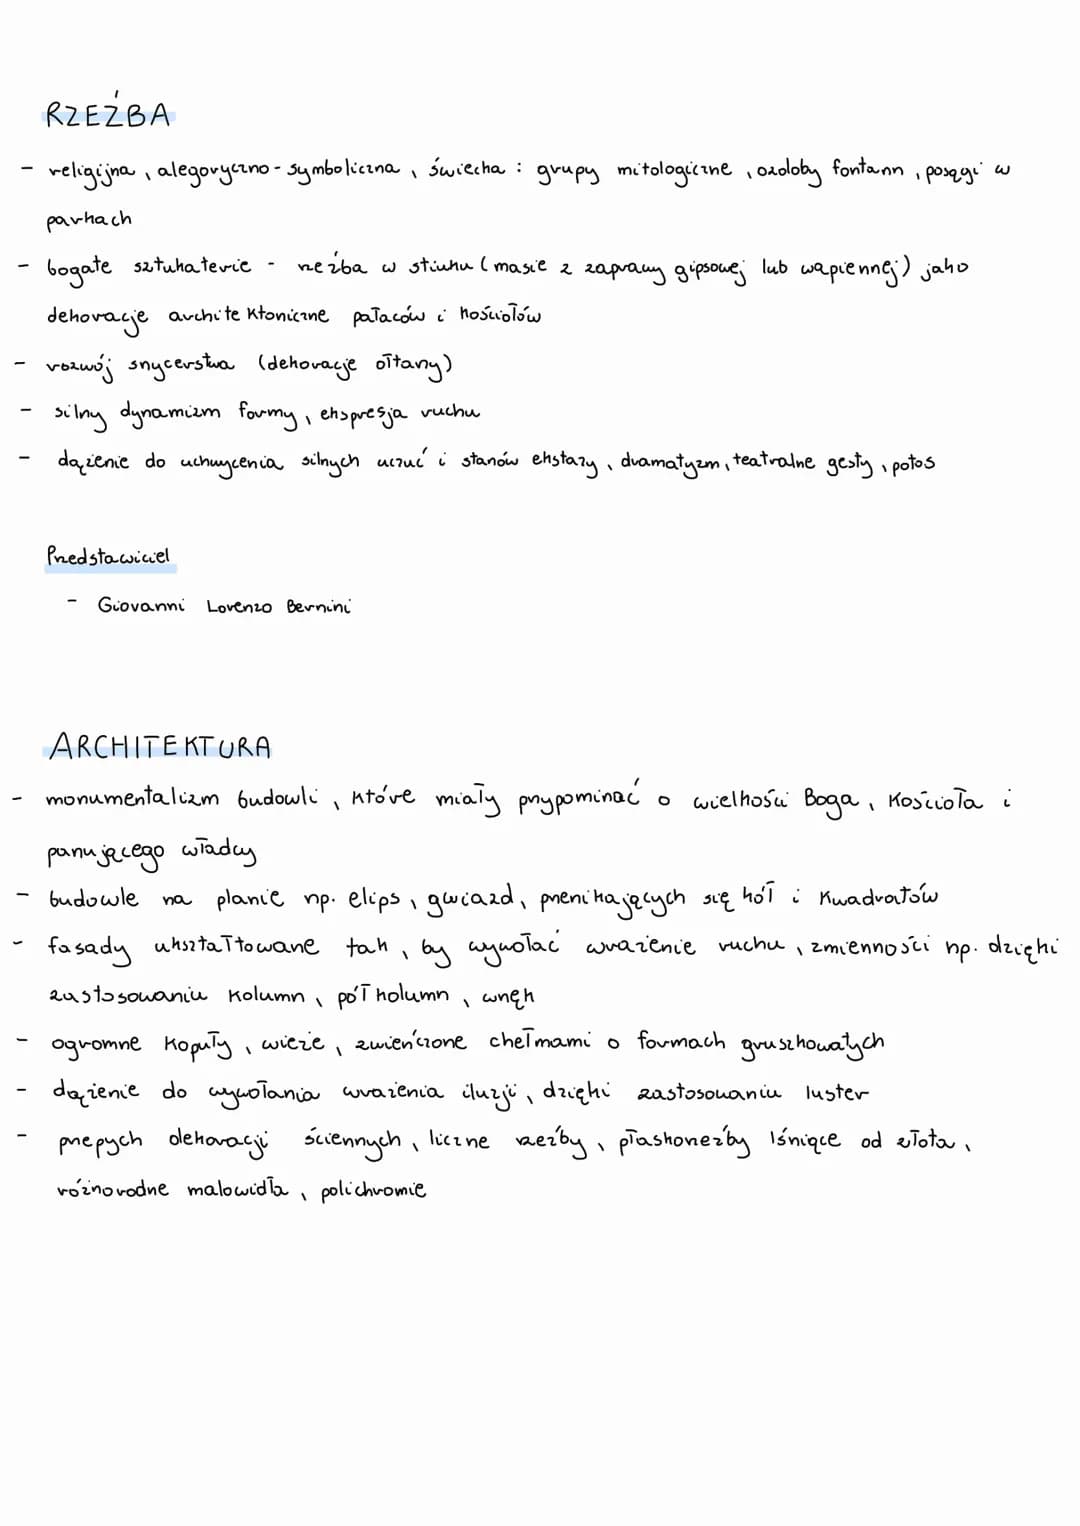 RZEŹBA
- religijna, alegoryczno-symboliczna, świecka: grupy mitologiczne, ozdoby fontann, posągi w
parkach
- bogate sztukaterie - rzeźba w stiuku (masie z zaprawy gipsowej lub wapiennej) jako
dekoracje architektoniczne pałaców i kościołów
- rozwój snycerstwa (dekoracje ołtarzy)
- silny dynamizm formy, ekspresja ruchu
- dążenie do uchwycenia silnych uczuć i stanów ekstazy, dramatyzm, teatralne gesty, potos
Przedstawiciel
- Giovanni Lorenzo Bernini
ARCHITEKTURA
- monumentalizm budowli, które miały przypominać o wielkości Boga, Kościoła i
panującego władcy
- budowle na planie np. elips, gwiazd, przenikających się kół i kwadratów
- fasady ukształtowane tak, by wywołać wrażenie ruchu, zmienności np. dzięki
zastosowaniu kolumn, półkolumn, wnęk
- ogromne kopuły, wieże, zwieńczone chełmami o formach gruszkowatych
- dążenie do wywołania wrażenia iluzji, dzięki zastosowaniu luster
- przepych dekoracji ściennych, liczne rzeźby, płaskorzeźby lśniące od złota,
różnorodne malowidła, polichromie